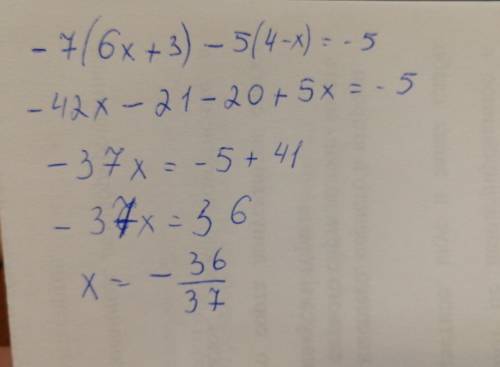 -7(6x+3)-5(4-x)=-5
-42x-21-20+5x=-5
-37x=-5+41
-37x=36
x=-36/37